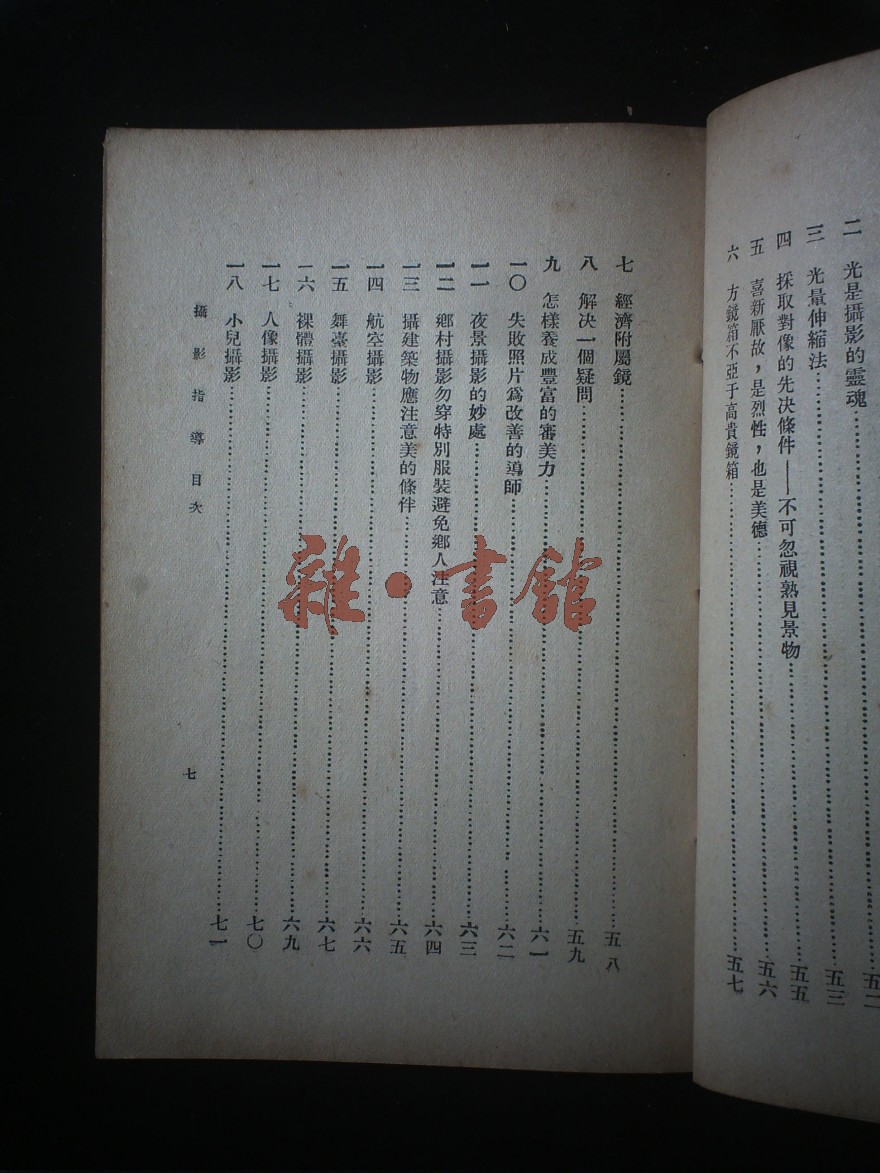 二　光是攝影的靈魂…………五二
三　光量伸縮法…………五三
四　採取對像的先决條件——不可忽視熟見景物…………五五
五　喜新厭故，是烈性，也是美德…………五六
六　方鏡箱不亞于高貴鏡箱…………五七
七　經濟附屬鏡…………五八
八　解决一個疑問…………五九
九　怎樣養成豐富的審美力…………六一
一〇　失敗照片爲改善的導師…………六二
一一　夜景攝影的妙處…………六三
一二　鄉村攝影勿穿特別服裝避免鄉人注意…………六四
一三　攝建築物應注意美的條件…………六五
一四　航空攝影…………六六
一五　舞臺攝影…………六七
一六　裸體攝影…………六九
一七　人像攝影…………七〇
一八　小兒攝影…………七一
攝影指導目次
七
雜·書館